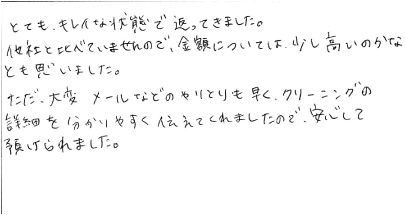 とても、キレイな状態で返ってきました。
他社と比べていませんので、金額については、少し高いのかな
とも思いました。
ただ、大変 メールなどのやりとりも早く、クリーニングの
詳細を分かりやすく伝えてくれましたので、安心して
預けられました。